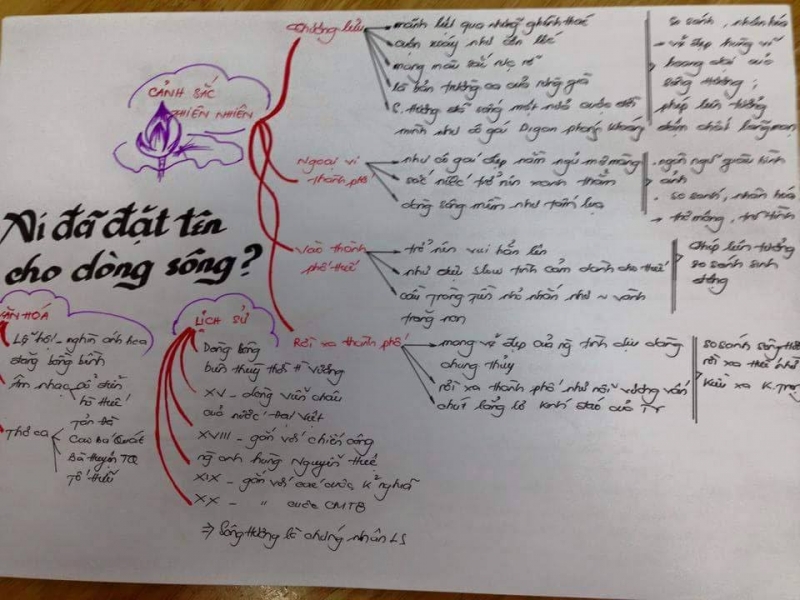 Ai đã đặt tên
cho dòng sông?
CẢNH SẮC
THIÊN NHIÊN
Thượng lưu
mãnh liệt qua những ghềnh thác
cuộn xoáy như cơn lốc
mang màu sắc rực rỡ
là bản trường ca của rừng già
S. Hương đã sống một nửa cuộc đời
mình như cô gái Digan phóng khoáng
so sánh, nhân hóa
→ vẻ đẹp hùng vĩ
hoang dại của
sông Hương;
phép liên tưởng
đậm chất lãng mạn
Ngoại vi
thành phố
như cô gái đẹp nằm ngủ mơ màng
sắc nước trở nên xanh thẳm
dòng sông mềm như tấm lụa
. ngôn ngữ giàu hình
ảnh
. so sánh, nhân hóa
→ thơ mộng, trữ tình
Vào thành
phố Huế
trở nên vui hẳn lên
như điệu slow tình cảm dành cho Huế
cầu Tràng Tiền nhỏ nhắn như ~ vành
trăng non
phép liên tưởng
so sánh sinh
động
Rời xa thành phố
mang vẻ đẹp của ng tình dịu dàng
chung thủy
rời xa thành phố như nỗi vương vấn
chút lẳng lơ kính đáo của TY
so sánh sông Hương
rời xa Huế như
Kiều xa K. Trọng
VĂN HOÁ
Lễ hội - nghìn ánh hoa
đăng bồng bềnh
Âm nhạc cổ điển
hò Huế
Thơ ca
Tản Đà
Cao Bá Quát
Bà Huyện TQ
Tố Hữu
LỊCH SỬ
Dòng sông
biên thùy thời
XV - dòng viễn châu
của nước Đại Việt
XVIII - gắn với chiến công
ng anh hùng Nguyễn Huệ
XIX - gắn với các cuộc K nghĩa
XX - " cuộc CMT8
⇒ Sông Hương là chứng nhân LS